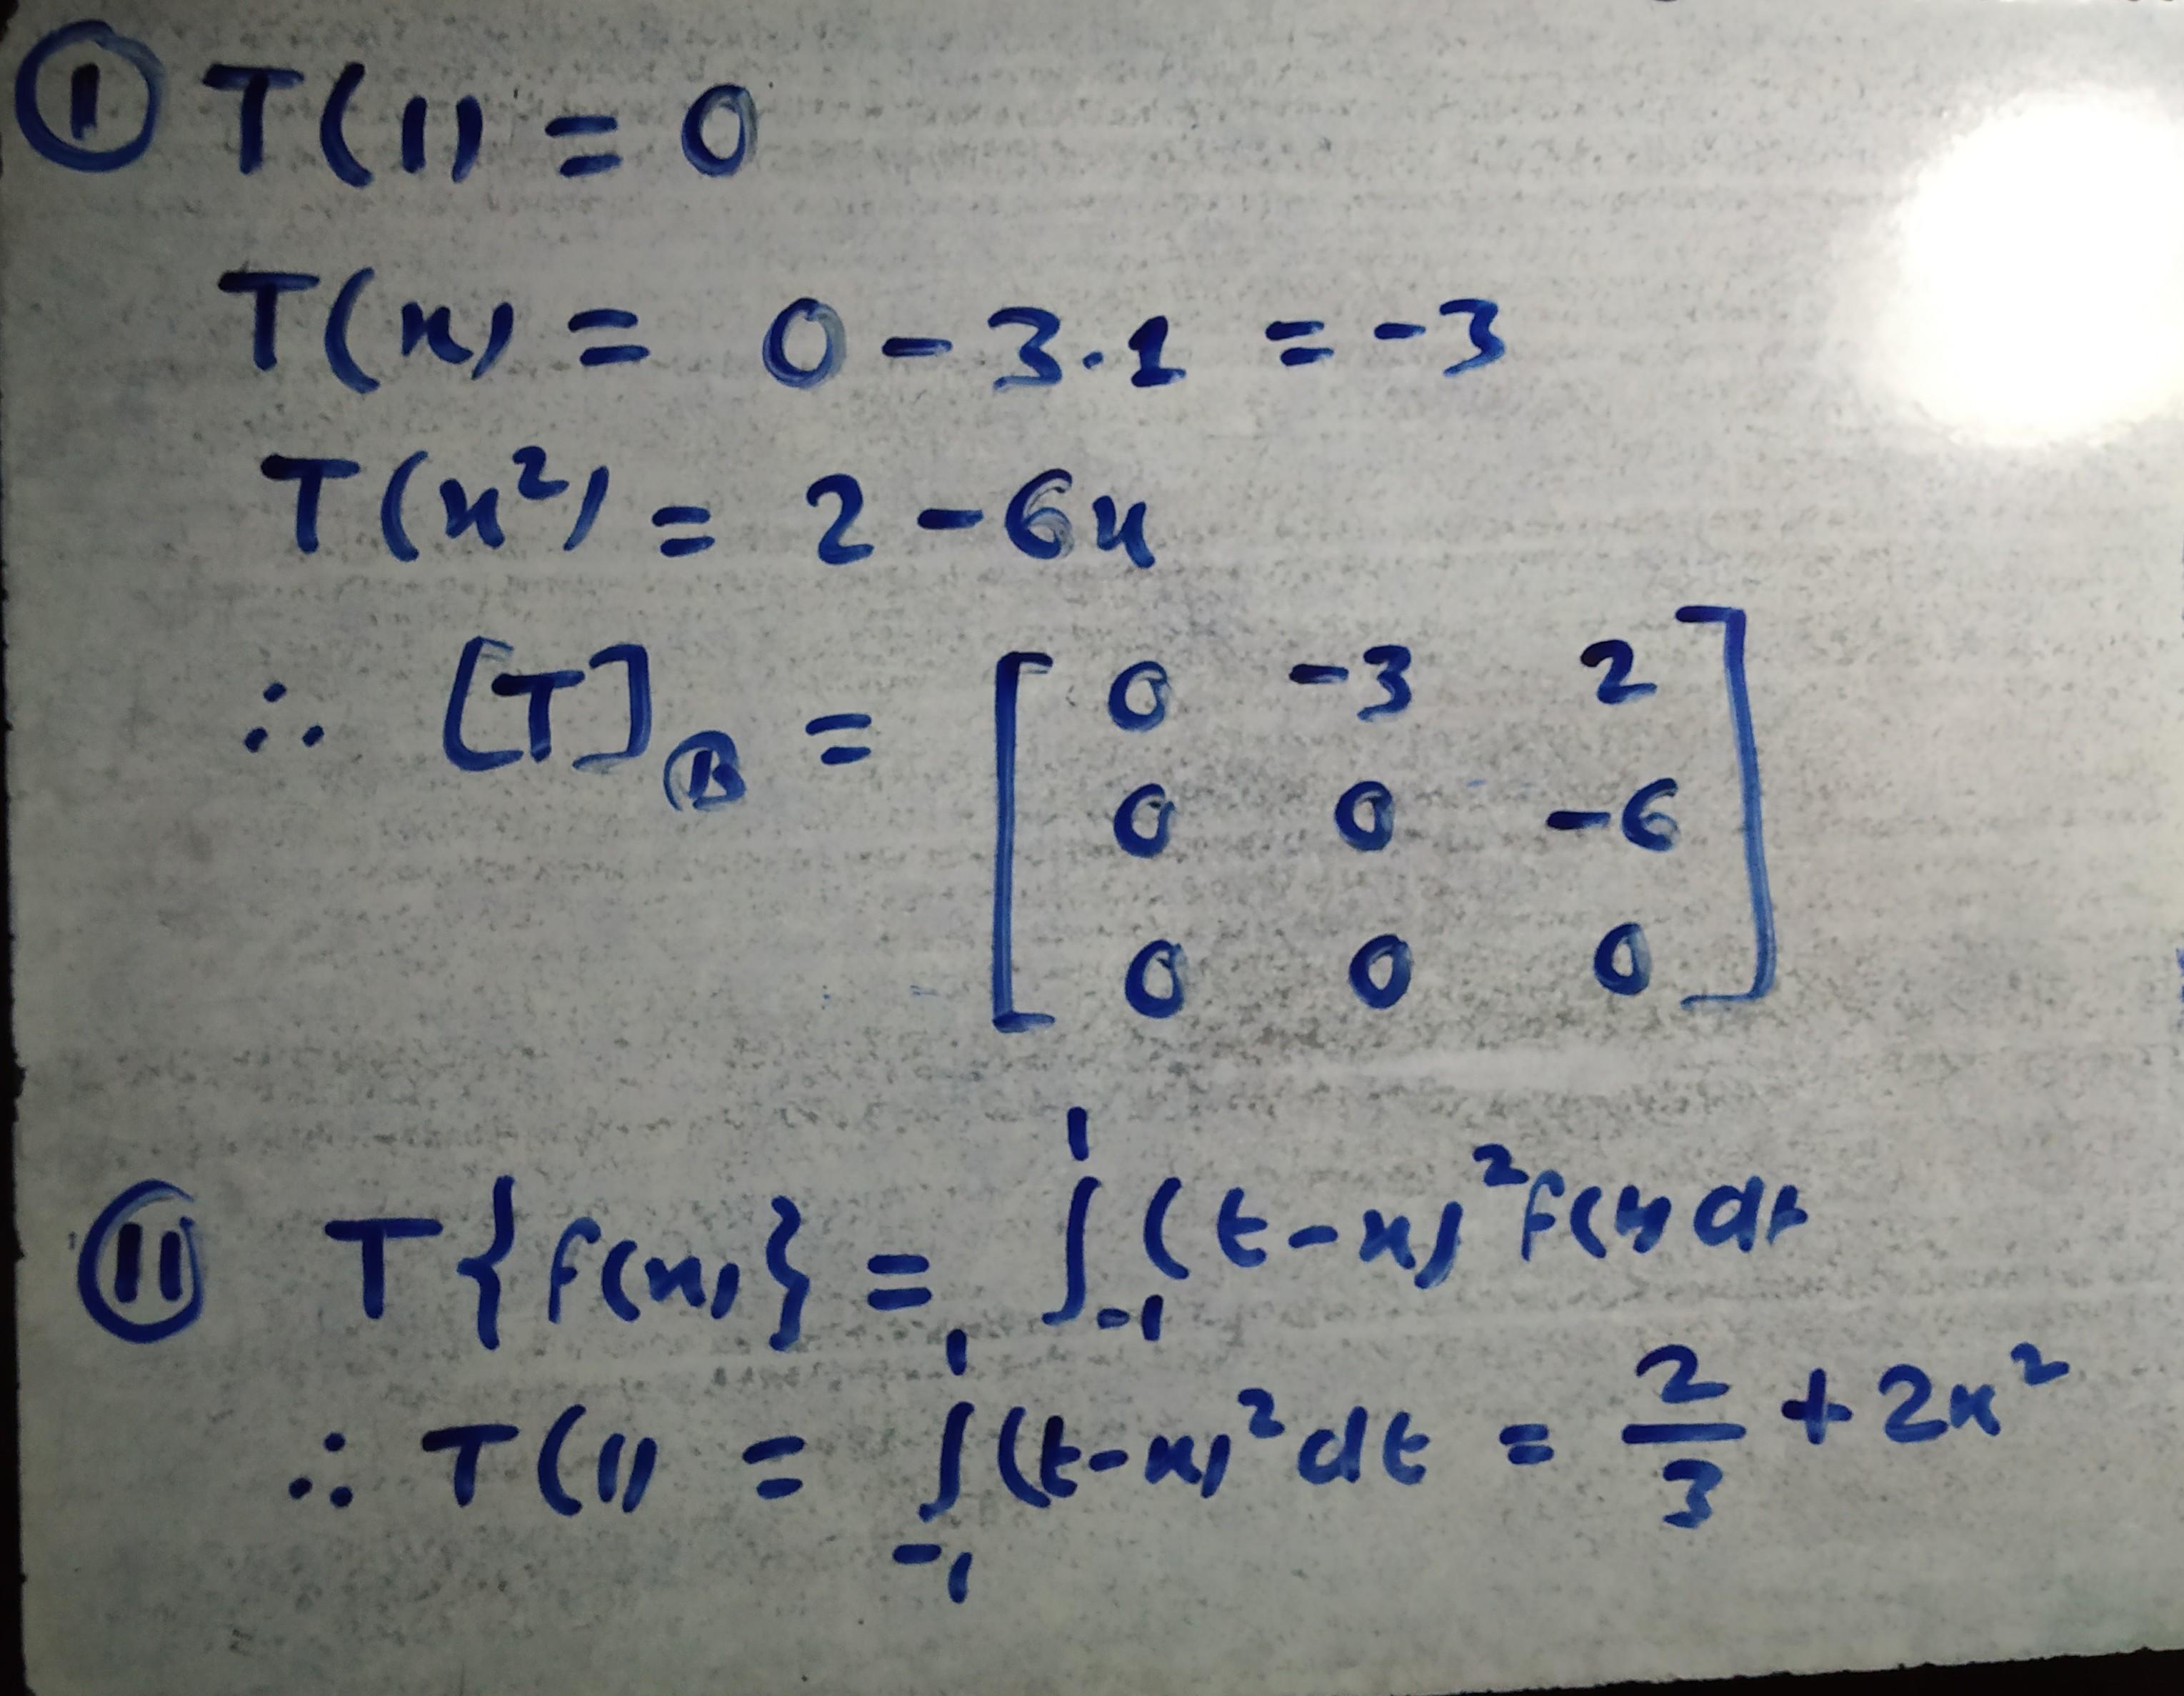 ① T(1) = 0
T(x) = 0 - 3.1 = -3
T(x²) = 2 - 6x
∴ [T]_B = [ 0 -3 2
0 0 -6
0 0 0 ]
⑪ T{f(x)} = ∫₋₁¹ (t-x)² f(t) dt
∴ T(1) = ∫₋₁¹ (t-x)² dt = 2/3 + 2x²